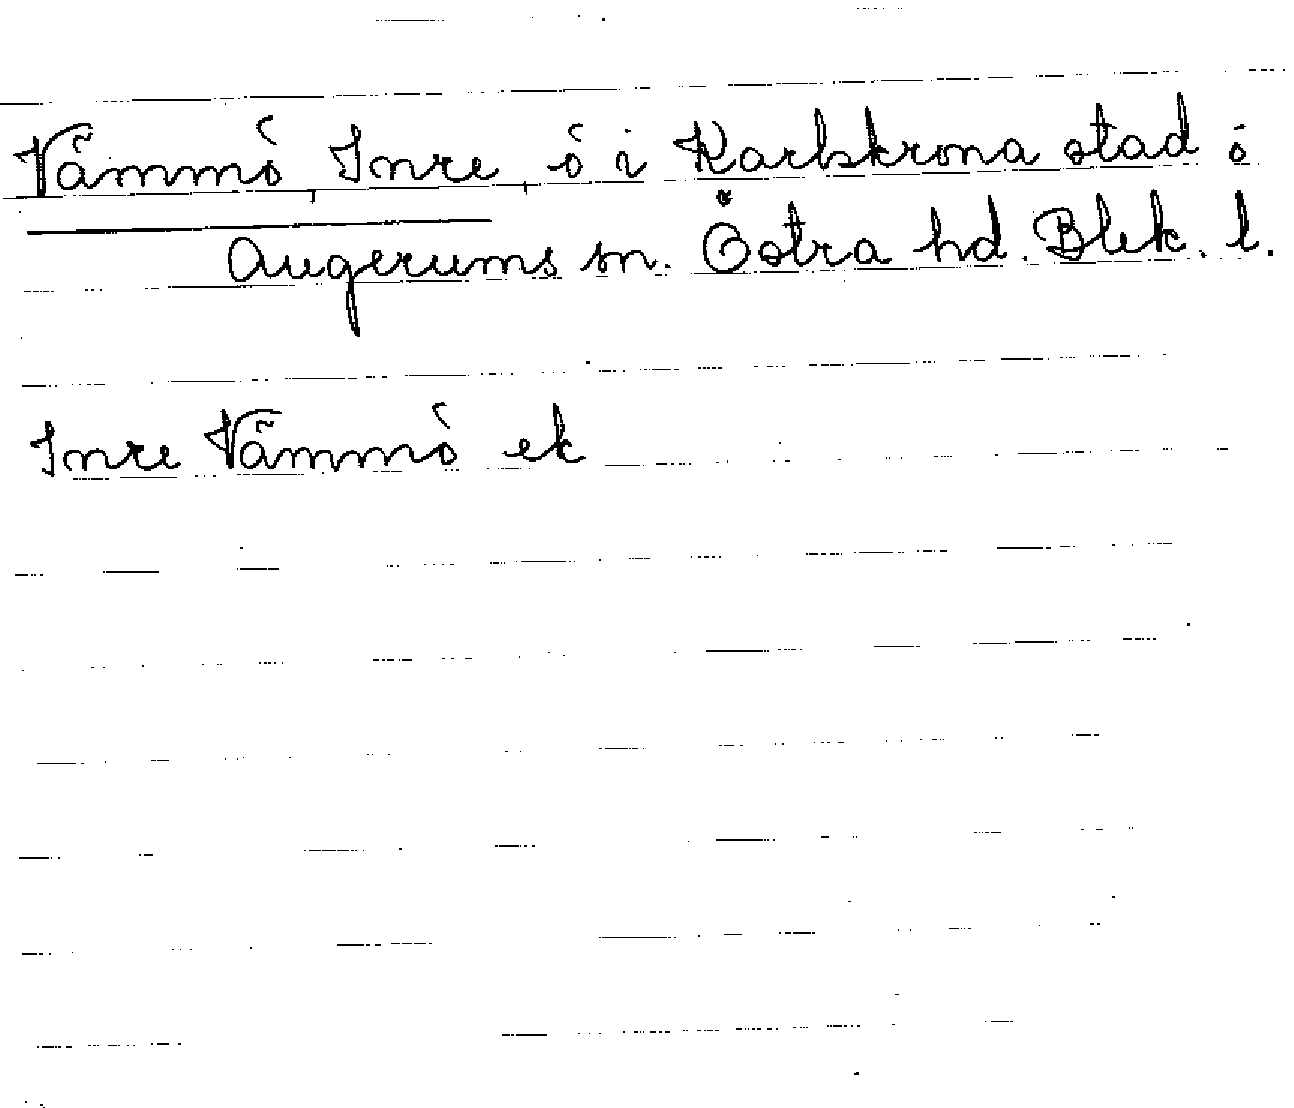 Vämmö, Inre, ö i Karlskrona stad ö
Augerums sn. Östra hd. Blek. l.
Inre Vämmö ek